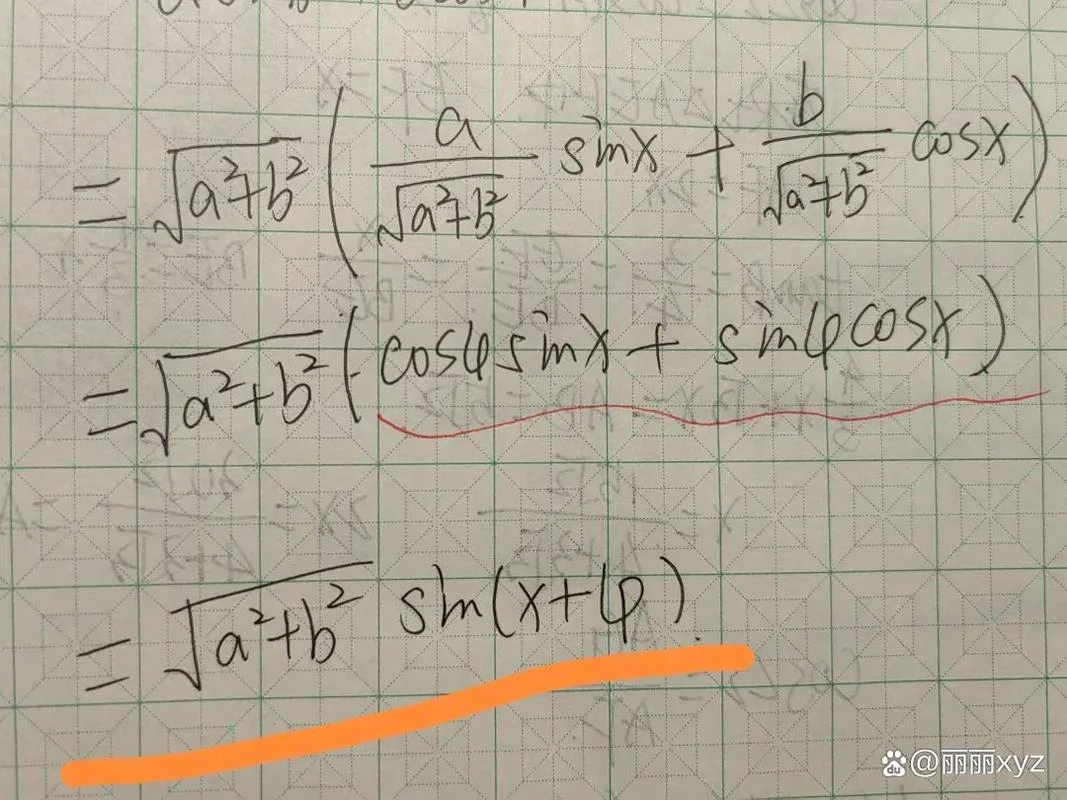 = √(a²+b²) ( a/√(a²+b²) sinx + b/√(a²+b²) cosx )
= √(a²+b²) ( cosφsinx + sinφcosx )
= √(a²+b²) sin(x+φ).
du @丽丽xyz